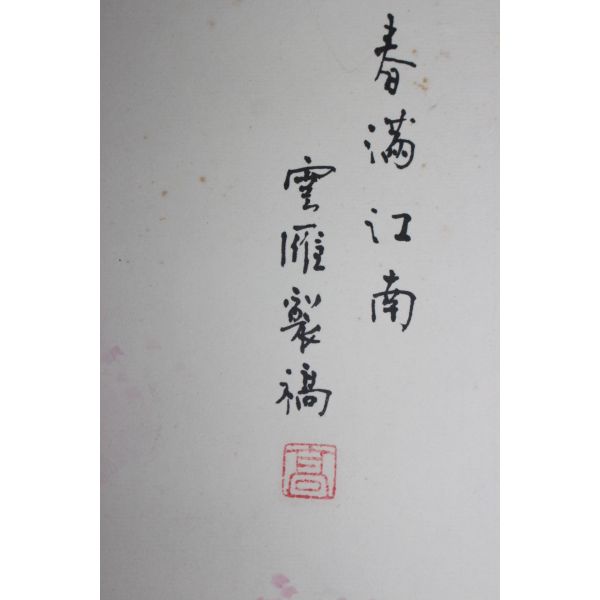 春满江南
雲雁製稿
高